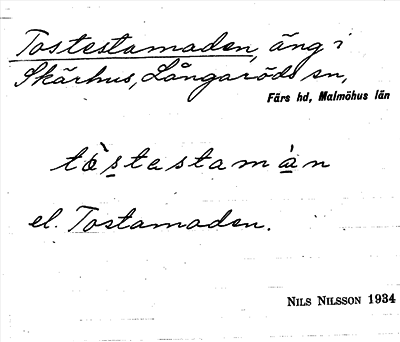 Tostestamaden, äng i
Skärhus, Långaröds sn,
Färs hd, Malmöhus län
tòs̲testamà̲n
el. Tostamaden.
NILS NILSSON 1934